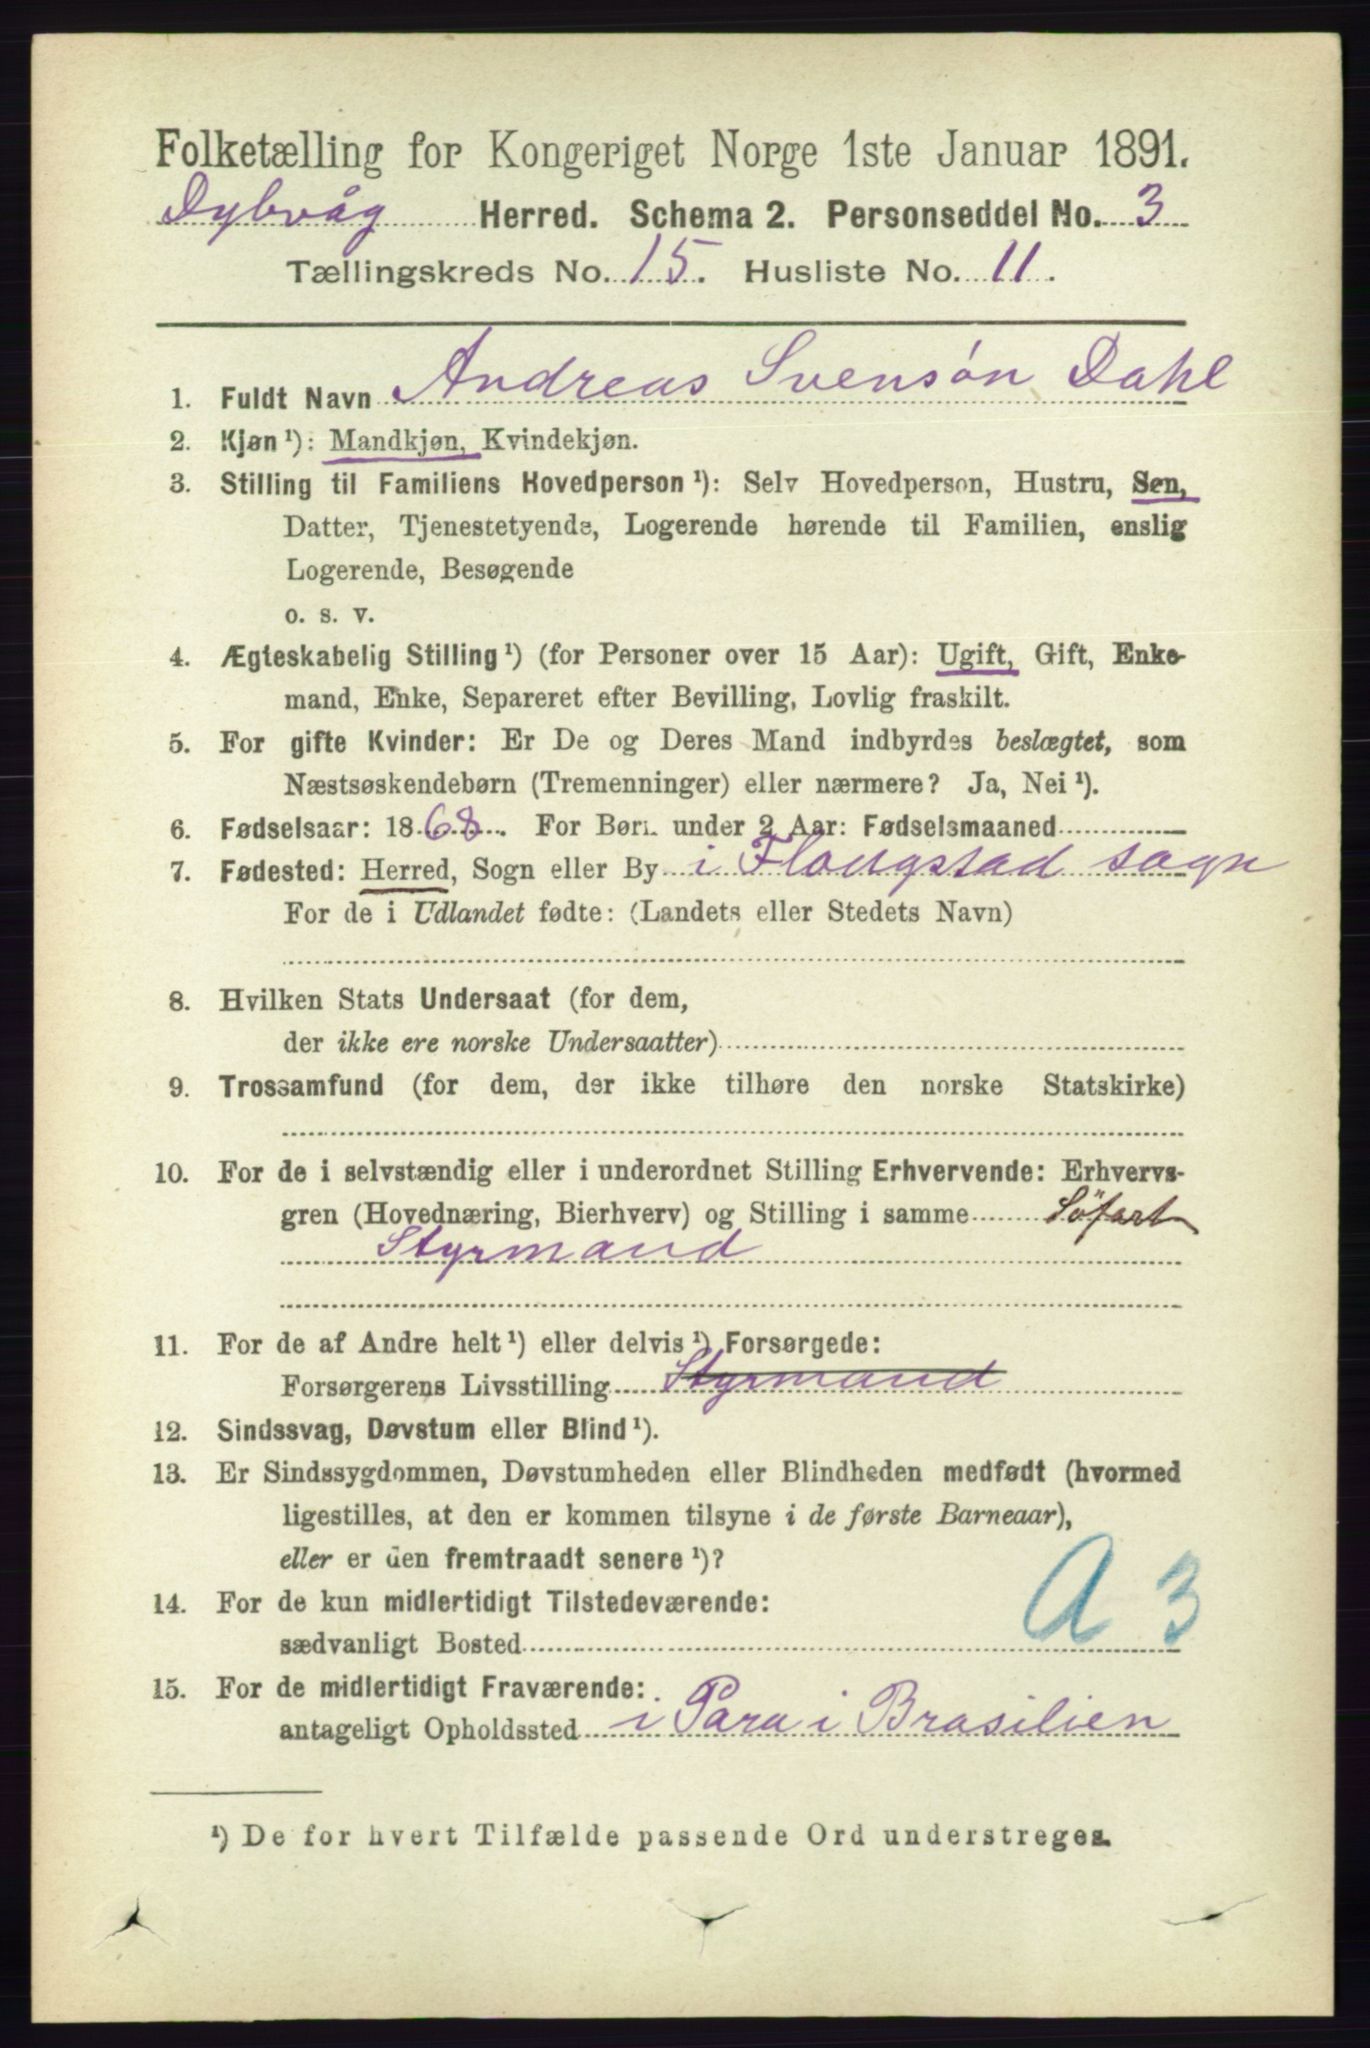 Folketælling for Kongeriget Norge 1ste Januar 1891.
Dybvåg Herred. Schema 2. Personseddel No. 3
Tællingskreds No. 15. Husliste No. 11.
1. Fuldt Navn Andreas Svensøn Dahl
2. Kjøn ¹): Mandkjøn, Kvindekjøn.
3. Stilling til Familiens Hovedperson ¹): Selv Hovedperson, Hustru, Søn,
Datter, Tjenestetyende, Logerende hørende til Familien, enslig
Logerende, Besøgende
o. s. v.
4. Ægteskabelig Stilling ¹) (for Personer over 15 Aar): Ugift, Gift, Enke-
mand, Enke, Separeret efter Bevilling, Lovlig fraskilt.
5. For gifte Kvinder: Er De og Deres Mand indbyrdes beslægtet, som
Næstsøskendebørn (Tremenninger) eller nærmere? Ja, Nei ¹).
6. Fødselsaar: 1868. For Børn under 2 Aar: Fødselsmaaned
7. Fødested: Herred, Sogn eller By i Flougstad sogn
For de i Udlandet fødte: (Landets eller Stedets Navn)
8. Hvilken Stats Undersaat (for dem,
der ikke ere norske Undersaatter)
9. Trossamfund (for dem, der ikke tilhøre den norske Statskirke)
10. For de i selvstændig eller i underordnet Stilling Erhvervende: Erhvervs-
gren (Hovednæring, Bierhverv) og Stilling i samme Söfart
Styrmand
11. For de af Andre helt ¹) eller delvis ¹) Forsørgede:
Forsørgerens Livsstilling Styrmand
12. Sindssvag, Døvstum eller Blind ¹).
13. Er Sindssygdommen, Døvstumheden eller Blindheden medfødt (hvormed
ligestilles, at den er kommen tilsyne i de første Barneaar),
eller er den fremtraadt senere ¹)?
14. For de kun midlertidigt Tilstedeværende:
sædvanligt Bosted
A 3
15. For de midlertidigt Fraværende:
antageligt Opholdssted i Para i Brasilien
¹) De for hvert Tilfælde passende Ord understreges.